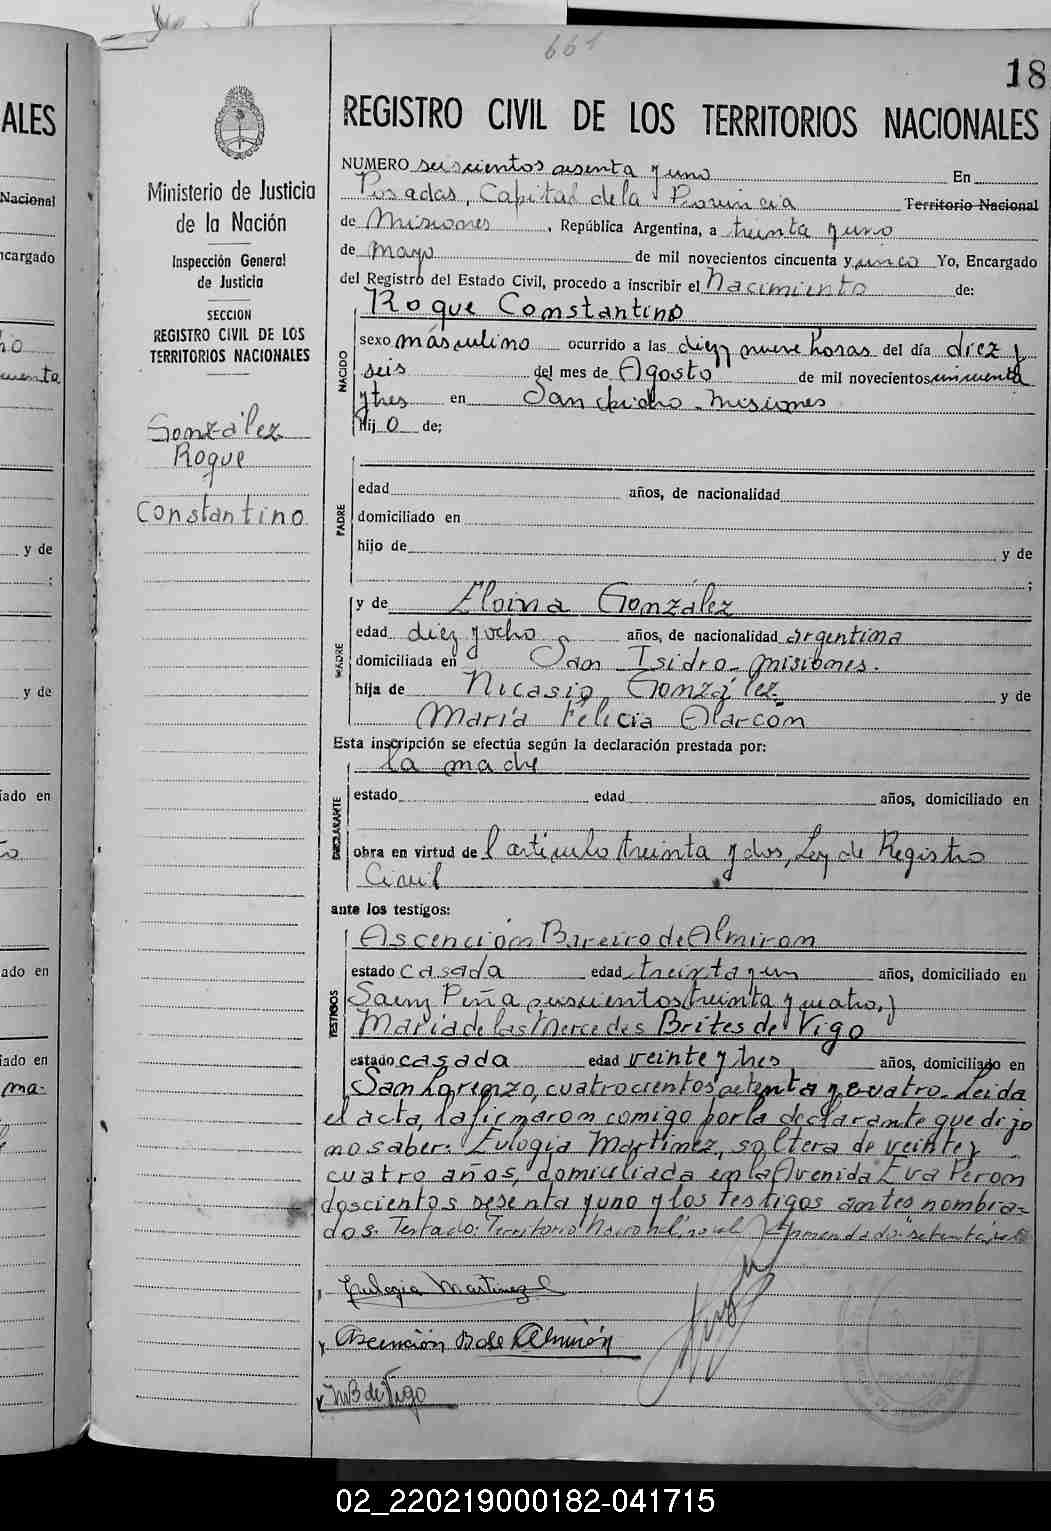 661
18
ALES
REGISTRO CIVIL DE LOS TERRITORIOS NACIONALES
Ministerio de Justicia
de la Nación
Inspección General
de Justicia
SECCION
REGISTRO CIVIL DE LOS
TERRITORIOS NACIONALES
González
Roque
Constantino
NUMERO seiscientos sesenta y uno En
Posadas, Capital de la Provincia Territorio Nacional
de Misiones, República Argentina, a treinta y uno
de mayo de mil novecientos cincuenta y cinco Yo, Encargado
del Registro del Estado Civil, procedo a inscribir el Nacimiento de:
Roque Constantino
NACIDO
sexo másculino ocurrido a las diez y nueve horas del día diez y
seis del mes de Agosto de mil novecientos cincuenta
y tres en San Isidro - misiones
Hij o de;
PADRE
edad años, de nacionalidad
domiciliado en
hijo de y de
;
MADRE
y de Eloina González
edad diez y ocho años, de nacionalidad argentina
domiciliada en San Isidro - misiones.
hija de Nicasio González y de
María Felicia Alarcón
Esta inscripción se efectúa según la declaración prestada por:
la madre
DECLARANTE
estado edad años, domiciliado en
obra en virtud de l artículo treinta y dos, Ley de Registro
Civil
ante los testigos:
TESTIGOS
Ascención Bareiro de Almiron
estado casada edad treinta y un años, domiciliado en
Saenz Peña seiscientos treinta y cuatro, y
María de las Mercedes Brites de Vigo
estado casada edad veinte y tres años, domiciliado en
San Lorenzo, cuatrocientos setenta y cuatro. Leida
el acta, la firmaron comigo por la declarante que dijo
no saber: Eulogia Martinez, soltera de veinte y
cuatro años, domiciliada en la Avenida Eva Peron
doscientos sesenta y uno y los testigos antes nombra-
dos. Testado: Territorio Nacional; Enmendado: setenta
Eulogia Martinez
Ascención B de Almirón
M B de Vigo
Nacional
ncargado
y de
;
y de
iado en
ado en
iado en
ma-
02_220219000182-041715